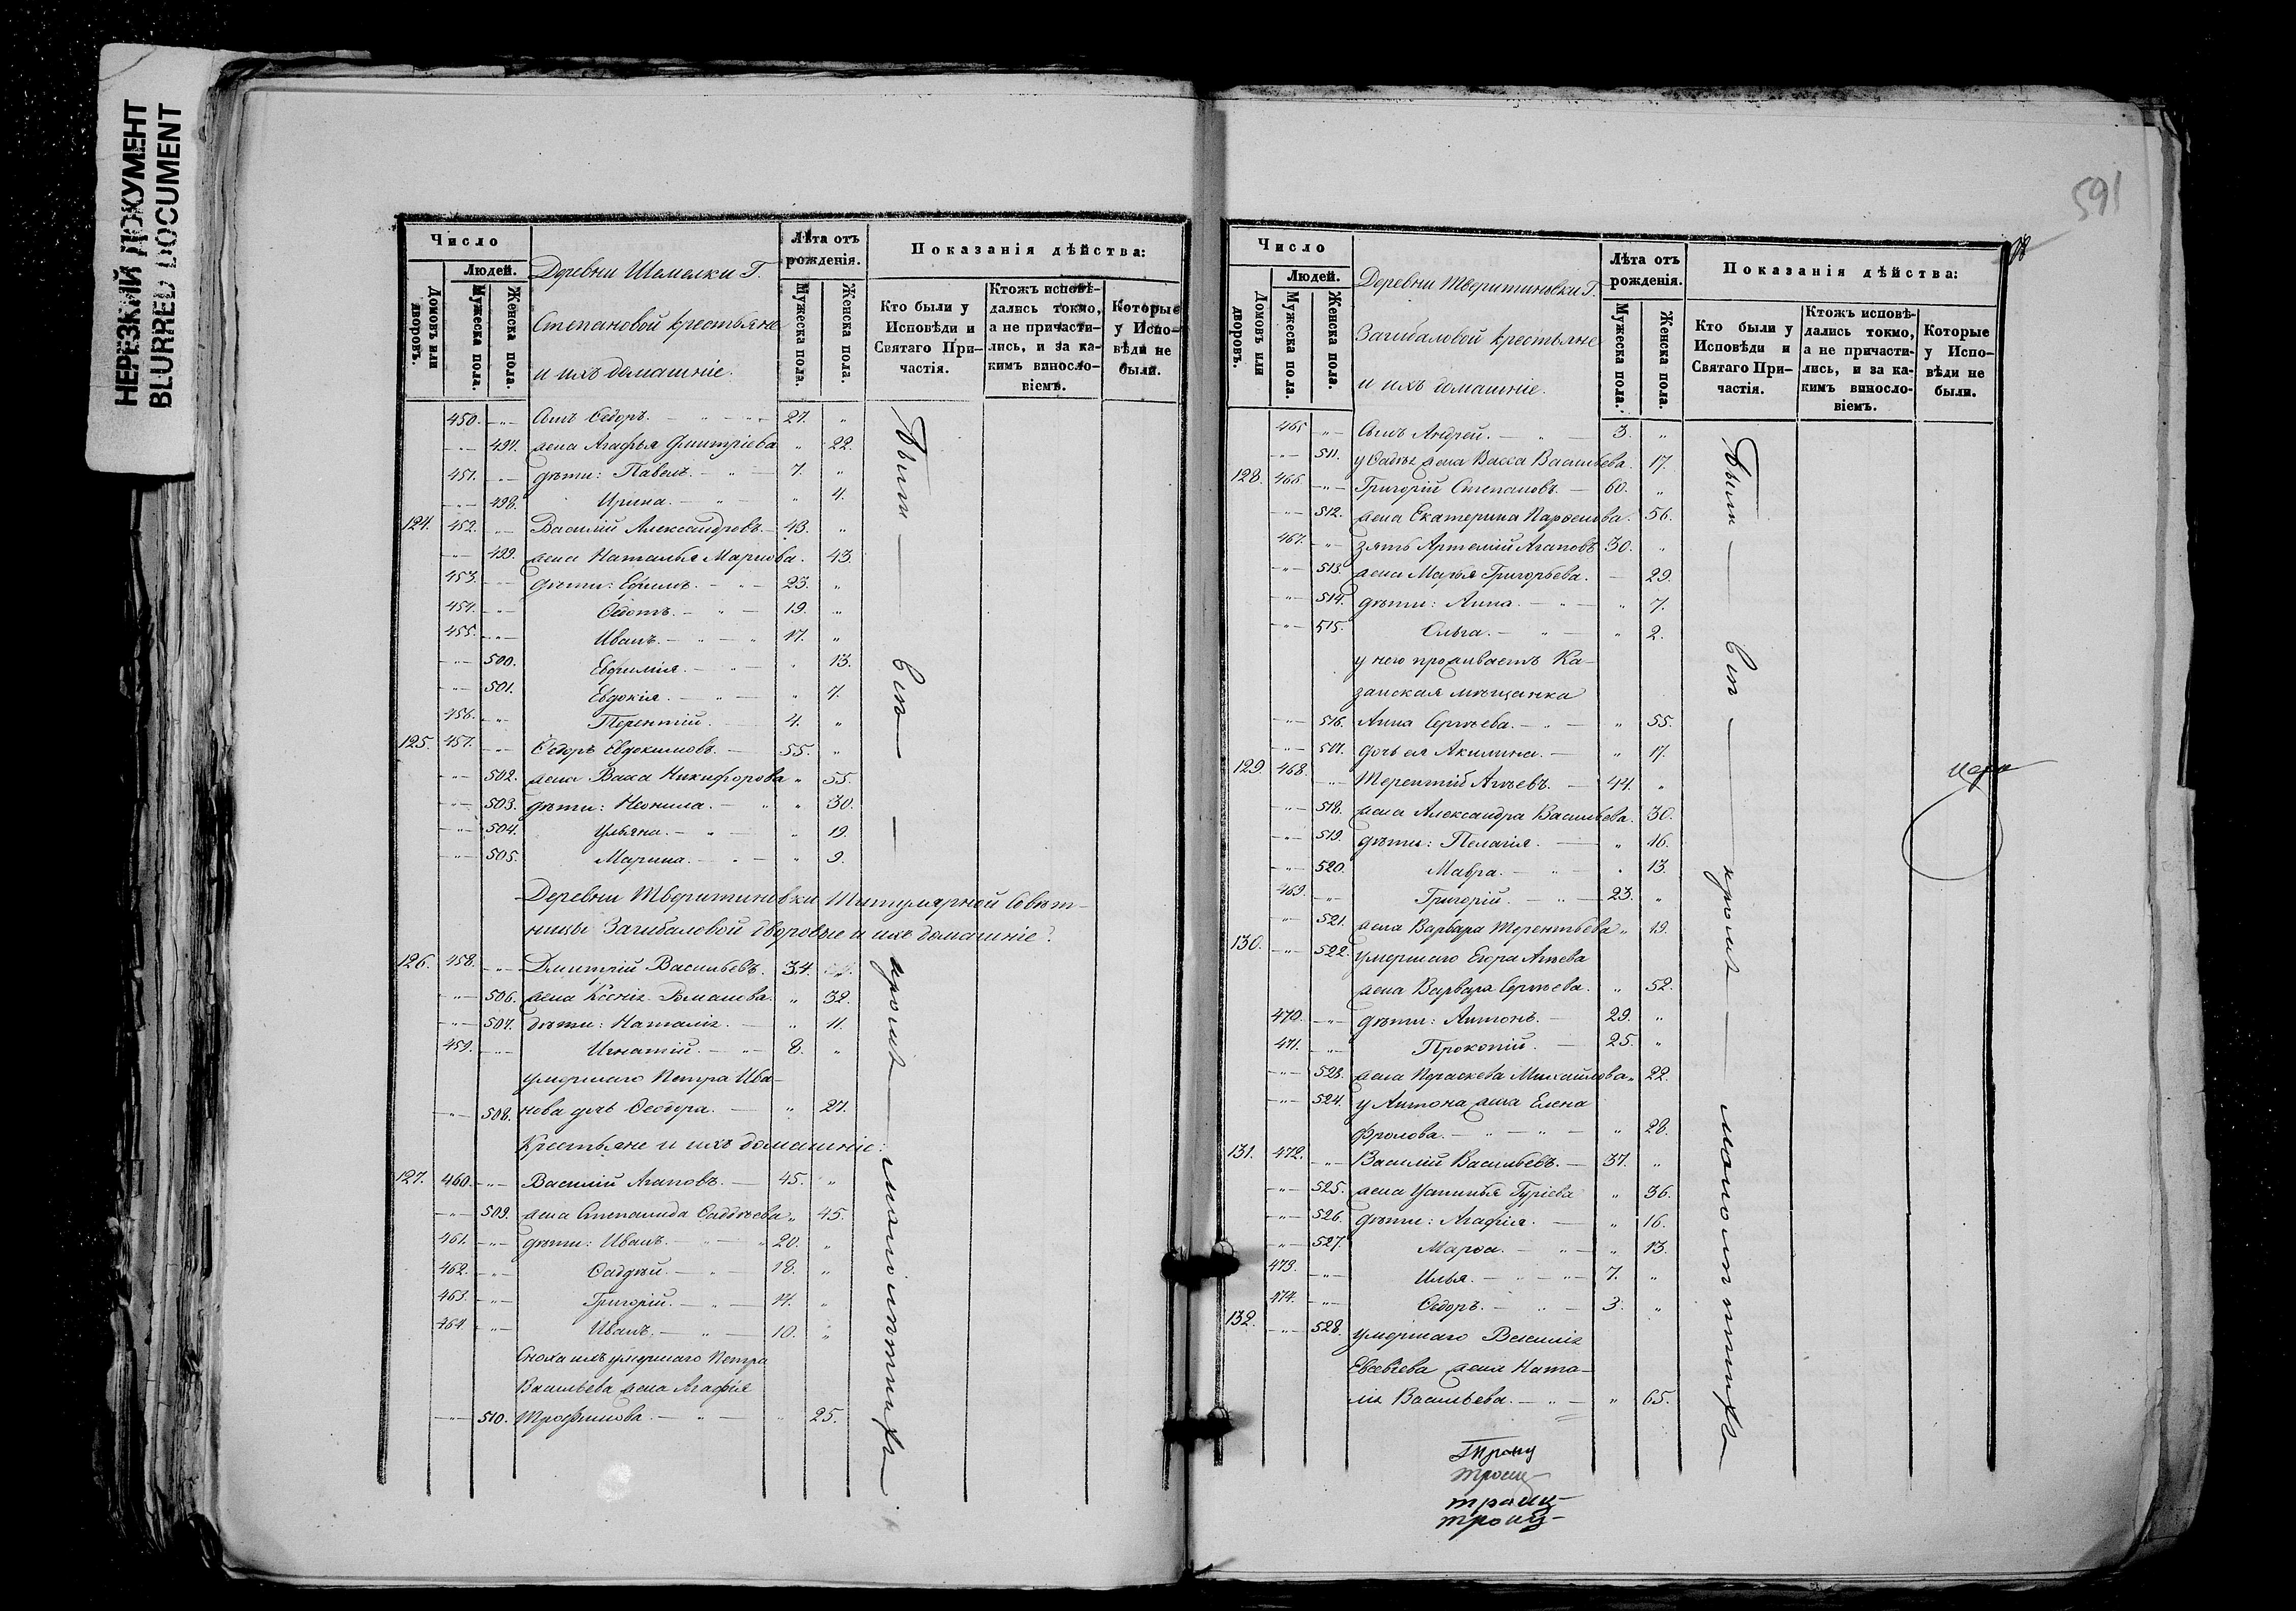 НЕРЕЗКИЙ ДОКУМЕНТ
BLURRED DOCUMENT
Число
Людей.
Домовъ или дворовъ.
Мужеска пола.
Женска пола.
Деревни Шемелки Г.
Степановой крестьяне
и ихъ домашніе.
Лѣта отъ рожденія.
Мужеска пола.
Женска пола.
Показанія дѣйства:
Кто были у Исповѣди и Святаго Причастія.
Ктожъ исповѣдались токмо, а не причастились, и за какимъ винословіемъ.
Которые у Исповѣди не были.
450. Сынъ Ѳедоръ. 27. "
497. жена Агафья Дмитріева " 22.
451. дѣти: Павелъ. 7. "
498. Ирина. " 4.
124. 452. Василій Александровъ. 43. "
499. жена Наталья Маркова. 43.
453. дѣти: Ефимъ. 23. "
454. Ѳедотъ. 19. "
455. Иванъ. 17. "
500. Евфимія. " 13.
501. Евдокія. " 7.
456. Терентій. 4. "
125. 457. Ѳедоръ Евдокимовъ. 55. "
502. жена Васса Никифорова " 55.
503. дѣти: Неонила. " 30.
504. Ульяна. " 19.
505. Марина. " 9.
Деревни Тверитиновки Титулярной Совѣт-
ницы Загибаловой дворовые и ихъ домашніе.
126. 458. Дмитрій Васильевъ. 34.
506. жена Ксенія Романова. " 32.
507. дѣти: Наталія. " 11.
459. Игнатій. 8. "
умершаго Петра Ива-
508. нова дочь Ѳеодора. " 27.
Крестьяне и ихъ домашніе:
127. 460. Василій Агаповъ. 45. "
509. жена Степанида Ѳаддѣева " 45.
461. дѣти: Иванъ. 20. "
462. Ѳаддѣй. 18. "
463. Григорій. 14. "
464. Иванъ. 10. "
Сноха ихъ умершаго Петра
Васильева жена Агафія
510. Трофимова. " 25.
Были — всѣ — кромѣ — малолѣтнихъ
591
Число
Людей.
Домовъ или дворовъ.
Мужеска пола.
Женска пола.
Деревни Тверитиновки Г.
Загибаловой крестьяне
и ихъ домашніе.
Лѣта отъ рожденія.
Мужеска пола.
Женска пола.
Показанія дѣйства:
Кто были у Исповѣди и Святаго Причастія.
Ктожъ исповѣдались токмо, а не причастились, и за какимъ винословіемъ.
Которые у Исповѣди не были.
465. Сынъ Андрей. 3. "
511. у Ѳаддѣя жена Васса Васильева. 17.
128. 466. Григорій Степановъ. 60. "
512. жена Екатерина Парѳенова. 56.
467. зять Артемій Агаповъ 30. "
513. жена Марья Григорьева. 29.
514. дѣти: Анна. " 7.
515. Ольга. " 2.
у него проживаетъ Ка-
занская мѣщанка
516. Анна Сергѣева. " 55.
517. дочь ея Акилина. " 17.
129. 468. Терентій Агѣевъ. 44. "
518. жена Александра Васильева. 30.
519. дѣти: Пелагія. " 16.
520. Мавра. " 13.
469. Григорій. 23. "
521. жена Варвара Терентьева " 19.
130. 522. умершаго Егора Агѣева
жена Варвара Сергѣева. " 52.
470. дѣти: Антонъ. 29. "
471. Прокопій. 25. "
523. жена Параскева Михайлова " 22.
524. у Антона жена Елена
Фролова. " 28.
131. 472. Василій Васильевъ. 37. "
525. жена Устинья Гуріева " 36.
526. дѣти: Агафія. " 16.
527. Марѳа. " 13.
473. Илья. 7. "
474. Ѳедоръ. 3. "
132. 528. умершаго Василія
Евсевіева жена Ната-
лія Васильева. " 65.
Были — всѣ — кромѣ — малолѣтнихъ
троиц-
троиц-